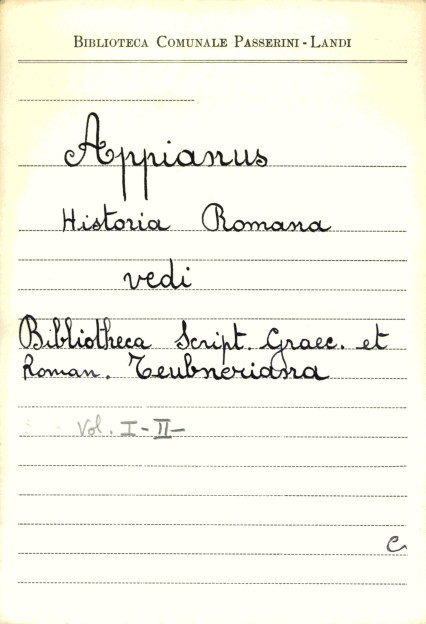 BIBLIOTECA COMUNALE PASSERINI - LANDI
Appianus
Historia Romana
vedi
Bibliotheca Script. Graec. et
Roman. Teubneriana
Vol. I - II -
C